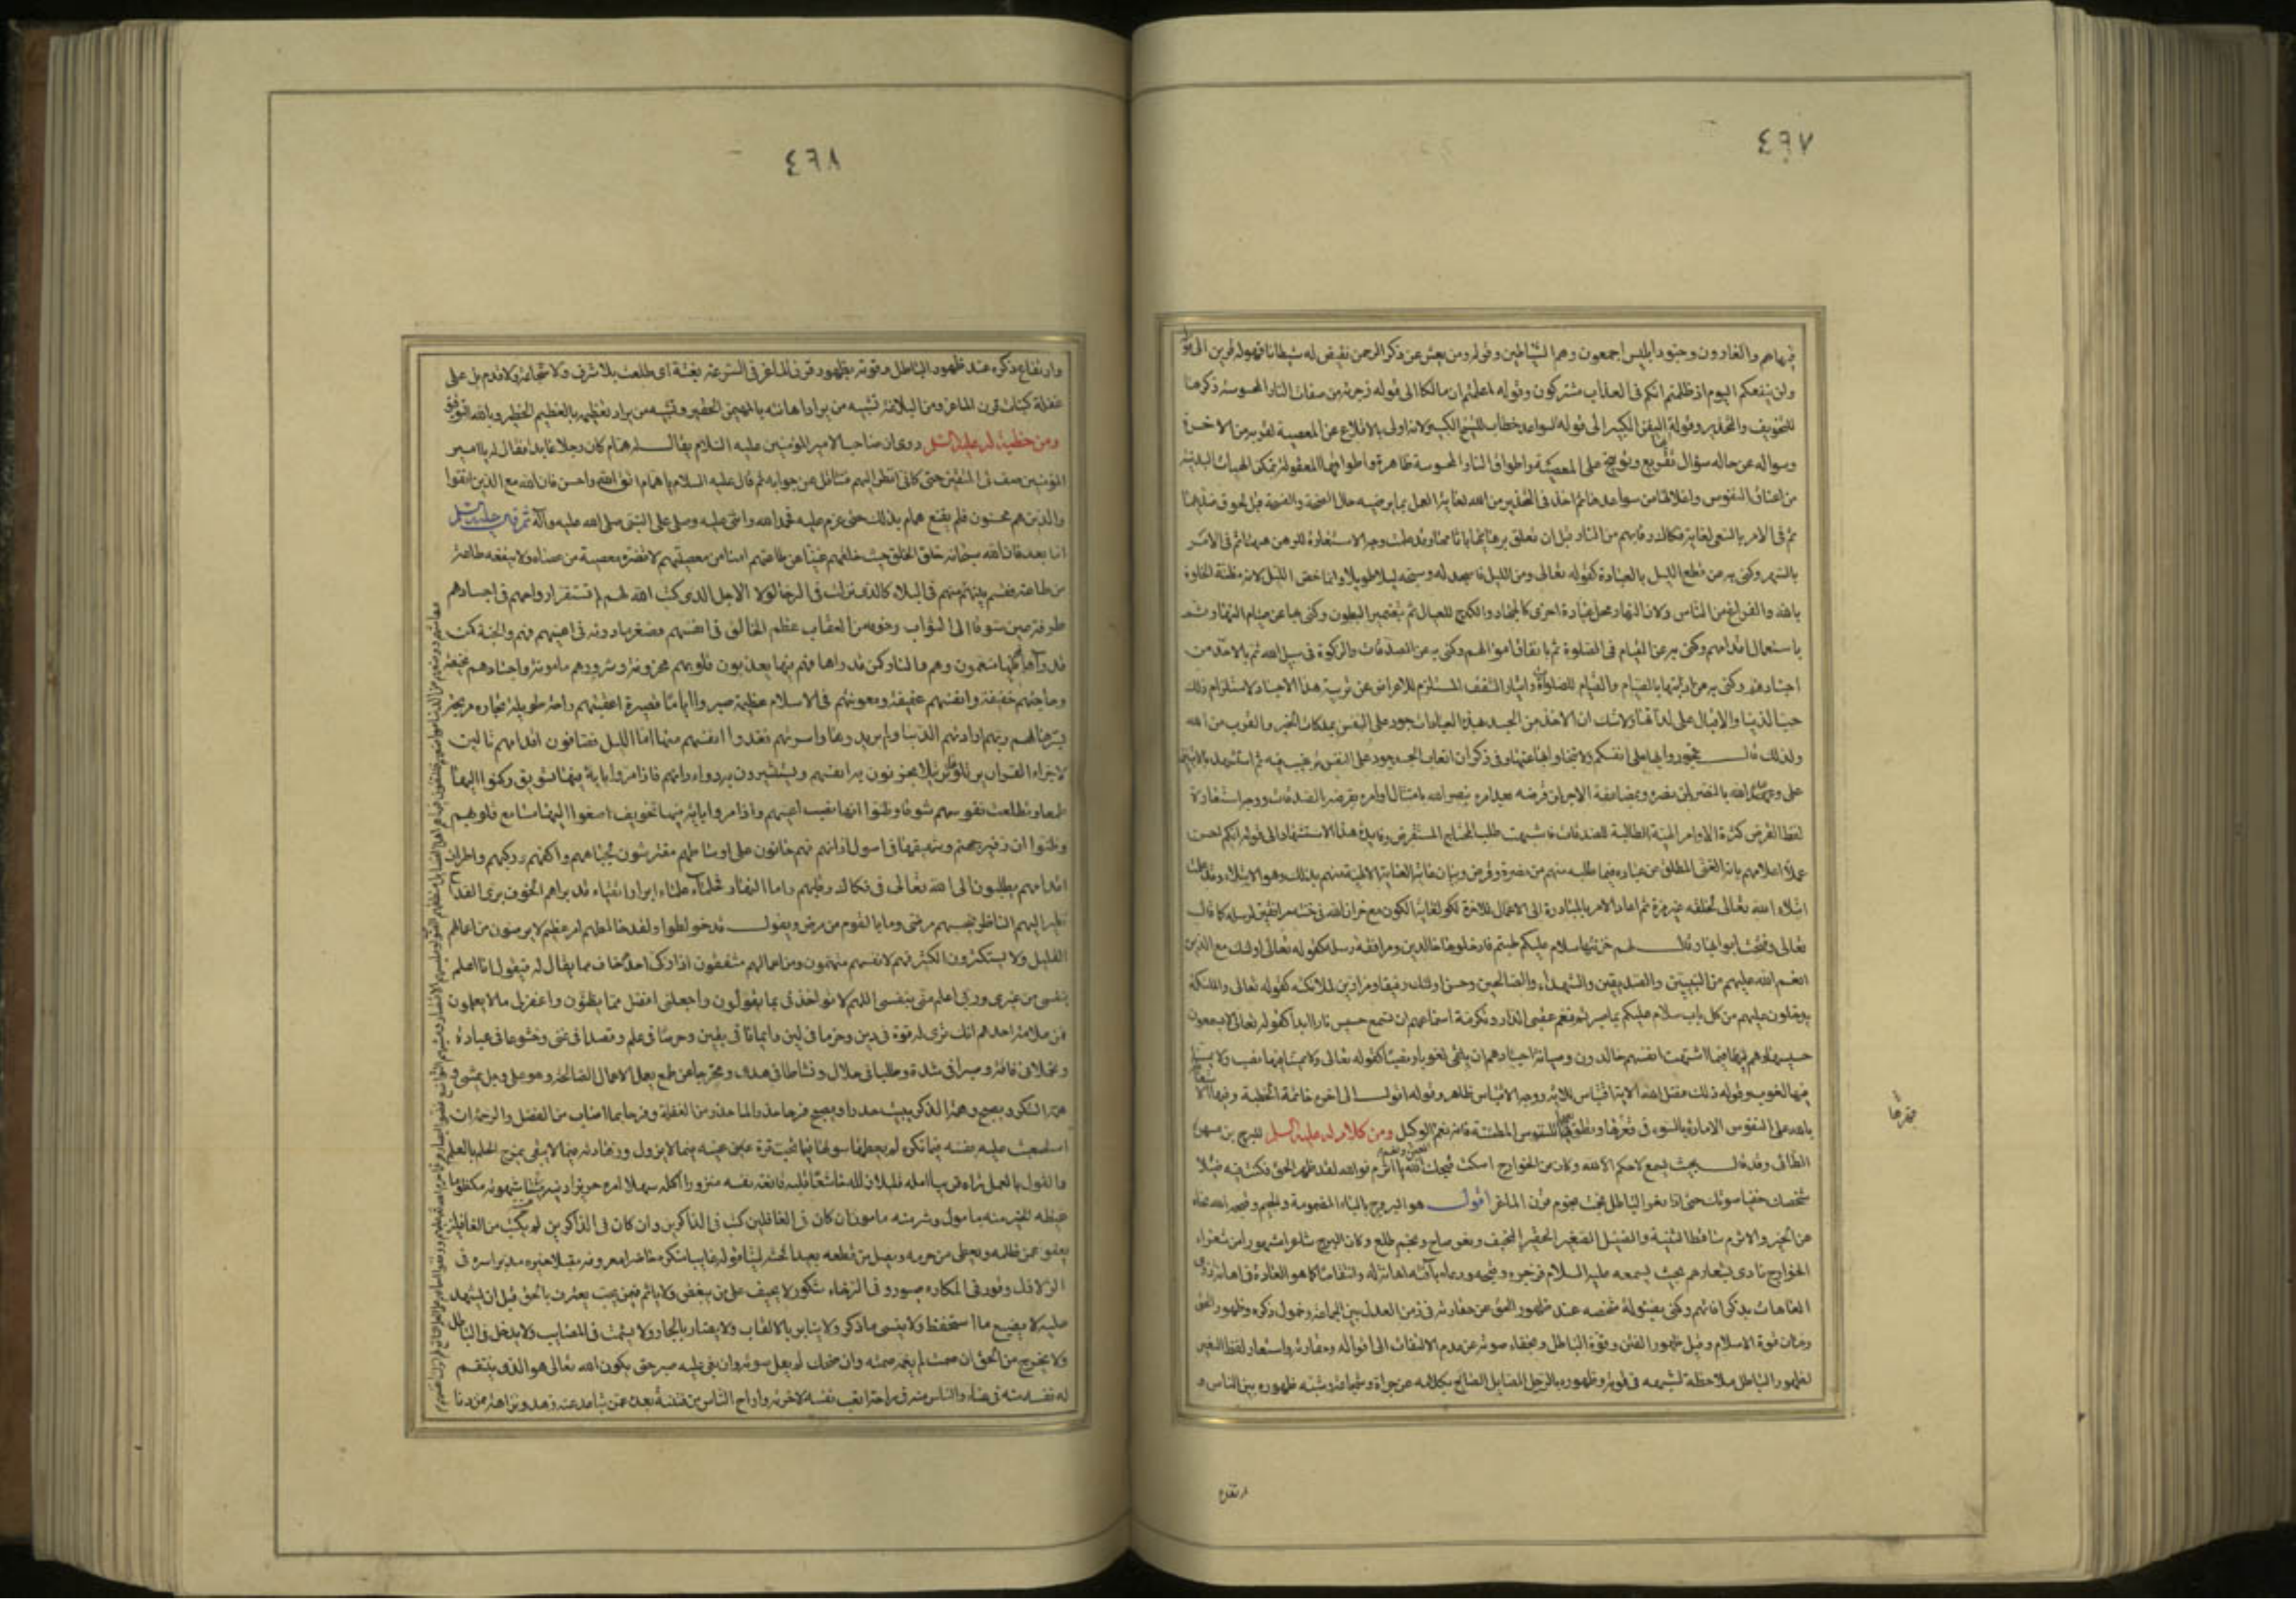 ٤٦٧
فيها هم والغاوون وجنود ابليس اجمعون وهم الشياطين وقوله ومن يعش عن ذكر الرحمن نقيض له شيطانا فهو له قرين الى قوله
ولن ينفعكم اليوم اذ ظلمتم انكم فى العذاب مشتركون وقوله اعلمتم ان مالكا الى قوله زجرته من صفات النار المحسوسة ذكرها
للتخويف والتحذير وقوله اليفن الكبير الى قوله السواعد خطاب للشيخ الكبير لانه اولى بالاقلاع عن المعصية لقربه من الاخرة
وسواله عن حاله سؤال تقريع وتوبيخ على المعصية واطواق النار المحسوسة ظاهرة واطواقها المعقولة تمكن الهيات البدنية
من اعناق النفوس واغلالها من سواعدها ثم اخذ فى التحذير من الله لغاية العمل بما يرضيه حال الصحة والفسحة قبل لحوق ضديهما
ثم فى الامر بالسعى لغاية فكاك رقابهم من النار قبل ان تغلق رهائنها باثامها وقد علمت وجه الاستعارة للرهن هيهنا ثم فى الامر
بالسهر وكنى به عن قطع الليل بالعبادة كقوله تعالى ومن الليل فاسجد له وسبحه ليلا طويلا وانما خص الليل لانه مظنة الخلوة
بالله والفراغ من الناس ولان النهار محل عبادة اخرى كالجهاد والكدح للعيال ثم بتضمير البطون وكنى بها عن صيام النهار ثم
باستعمال اقدامهم وكنى به عن القيام فى الصلوة ثم بانفاق اموالهم وكنى به عن الصدقات والزكوة فى سبيل الله ثم بالاخذ من
اجسادهم وكنى به عن اذابتها بالصيام والقيام للصلوة وايثار التقشف المستلزم للاعراض عن تربية هذا الاجساد لاستلزام ذلك
حب الدنيا والاقبال على لذاتها ولا شك ان الاخذ من الجسد بهذه العبادات جود على النفس بملكات الخير والقرب من الله
ولذلك قال تجودوا بها على انفسكم ولا تبخلوا بها عنها وفى ذكر ان اتعاب الجسد جود على النفس ترغيب فيه ثم استشهد بالايتين
على وعد الله بالنصر لمن نصره وبمضاعفة الاجر لمن اقرضه
لفظ القرض كثرة الاوامر الالهية الطالبة للصدقات فاشبهت طلب المحتاج المستقرض وفايدة هذا الاستشهاد الى قوله ايكم احسن
عملا اعلامهم بانه الغنى المطلق عن عباده فيما طلبه منهم من نصرة وقرض وبيان غاية العناية الالهية منهم بذلك وهو الابتلاء وقد علمت
ابتلاء الله تعالى لخلقه غير مرة ثم اعاد الامر بالمبادرة الى الاعمال للاخرة لكون غاية الكون مع جيران الله فى جنته مرافقين لرسله كما قال
تعالى وفتحت ابوابها وقال لهم خزنتها سلام عليكم طبتم فادخلوها خالدين ومرافقة رسله كقوله تعالى اولئك مع الذين
انعم الله عليهم من النبيين والصديقين والشهداء والصالحين وحسن اولئك رفيقا ومزاورين لملائكته كقوله تعالى والملئكة
يدخلون عليهم من كل باب سلام عليكم بما صبرتم فنعم عقبى الدار وتكرمة اسماعهم ان تسمع حسيس نار ابدا كقوله تعالى لا يسمعون
حسيسها وهم فيما اشتهت انفسهم خالدون وصيانة اجسادهم ان يلقى لغوبا ونصبا كقوله تعالى لا يمسنا فيها نصب ولا يمسنا
فيها لغوب وقوله ذلك فضل الله الاية اقتباس للاية ووجه الاقتباس ظاهر وقوله اقول الى اخره خاتمة الخطبة وفيها الاستعانة
بالله على النفوس الامارة بالسوء فى قهرها وتطويعها للنفوس المطمئنة فانه نعم الوكيل ومن كلام له عليه السلم للبرج بن مسهر
الطائى وقد قال بحيث يسمع لا حكم الا لله وكان من الخوارج اسكت قبحك الله يا اثرم فوالله لقد ظهر الحق فكنت فيه ضئيلا
شخصك خفيا صوتك حتى اذا نعر الباطل نجمت نجوم قرن الماعز اقول هو البروج بالباء المضمومة والجيم وقبحه الله نحاه
عن الخير والاثرم ساقط الثنية والضئيل الصغير الحقير النحيف ونعر صاح ونجم طلع وكان البرج شاعرا مشهورا من شعراء
الخوارج نادى بشعارهم بحيث يسمعه عليه السلام فزجره وقبحه ودعاه بآفته اهانة له وانتقاصا كما هو العادة فى اهانة ذوى
العاهات بذكر افاتهم وكنى بضئولة شخصه عند ظهور الحق عن حقارته فى زمن العدل بين الجماعة وخمول ذكره وظهور الحق
زمان قوة الاسلام وقبل ظهور الفتن وقوة الباطل وبخفاء صوته عن عدم الالتفات الى اقواله وحقارته واستعار لفظ النعير
لظهور الباطل ملاحظة لشبهه فى قوته وظهوره بالرجل الصايل الصائح بكلامه عن جراة وشجاعة وشبه ظهوره بين الناس و
ارتفاع
٤٦٨
وارتفاع ذكره عند ظهور الباطل وقوته بظهور قرن الماعز فى السرعة بغتة اى طلعت بلا شرف ولا شجاعة ولا قدم بل على
غفلة كنبات قرن الماعز ومن البلاغة تشبيه من يراد اهانته بالمهين الحقير وتشبيه من يراد تعظيمه بالعظيم الخطير وبالله التوفيق
ومن خطبة له عليه السلم روى ان صاحبا لامير المؤمنين عليه السلام يقال له همام كان رجلا عابدا فقال له يا امير
المؤمنين صف لى المتقين حتى كانى انظر اليهم فتثاقل عن جوابه ثم قال عليه السلام يا همام اتق الله واحسن فان الله مع الذين اتقوا
والذين هم محسنون فلم يقنع همام بذلك حتى عزم عليه فحمد الله واثنى عليه وصلى على النبى صلى الله عليه وآله ثم قال عليه السلم
اما بعد فان الله سبحانه خلق الخلق حيث خلقهم غنيا عن طاعتهم امنا من معصيتهم لا تضره معصية من عصاه ولا ينفعه طاعة
من طاعه فقسم بينهم
طرفة عين شوقا الى الثواب وخوفا من العقاب عظم الخالق فى انفسهم فصغر ما دونه فى اعينهم فهم والجنة كمن
قد رآها فهم فيها منعمون وهم والنار كمن قد راها فهم فيها يعذبون قلوبهم محزونة وشرورهم مامونة واجسادهم نحيفة
وحاجتهم خفيفة وانفسهم عفيفة ومعونتهم فى الاسلام عظيمة صبروا اياما قصيرة اعقبتهم راحة طويلة تجارة مربحة
يسرها لهم ربهم ارادتهم الدنيا ولم يريدوها واسرتهم ففدوا انفسهم منها اما الليل فصافون اقدامهم تالين
لاجزاء القران يرتلونه ترتيلا يحزنون به انفسهم ويستثيرون به دواء دائهم فاذا مروا باية فيها تشويق ركنوا اليها
طمعا وتطلعت نفوسهم شوقا وظنوا انها نصب اعينهم واذا مروا باية فيها تخويف اصغوا اليها مسامع قلوبهم
وظنوا ان زفير جهنم وشهيقها فى اصول اذانهم فهم حانون على اوساطهم مفترشون لجباههم واكفهم وركبهم واطراف
اقدامهم يطلبون الى الله تعالى فى فكاك رقابهم واما النهار فحلماء علماء ابرار اتقياء قد براهم الخوف برى القداح
ينظر اليهم الناظر فيحسبهم مرضى وما بالقوم من مرض ويقول قد خولطوا ولقد خالطهم امر عظيم لا يرضون من اعمالهم
القليل ولا يستكثرون الكثير فهم لانفسهم متهمون ومن اعمالهم مشفقون اذا زكى احد خاف مما يقال له فيقول انا اعلم
بنفسى من غيرى وربى اعلم منى بنفسى اللهم لا تواخذنى بما يقولون واجعلنى افضل مما يظنون واغفر لى ما لا يعلمون
فمن علامة احدهم انك ترى له قوة فى دين وحزما فى لين وايمانا فى يقين وحرصا فى علم وقصدا فى غنى وخشوعا فى عبادة
وتجملا فى فاقة وصبرا فى شدة وطلبا فى حلال ونشاطا فى هدى وتحرجا عن طمع يعمل الاعمال الصالحة وهو على وجل يمسى و
همه الشكر ويصبح وهمه الذكر يبيت حذرا ويصبح فرحا حذرا لما حذر من الغفلة وفرحا بما اصاب من الفضل والرحمة ان
استصعبت عليه نفسه فيما تكره لم يعطها سولها فيما تحب قرة عينه فيما لا يزول وزهادته فيما لا يبقى يمزج الحلم بالعلم
والقول بالعمل تراه قريبا امله قليلا زلله خاشعا قلبه قانعة نفسه منزورا اكله سهلا امره حريزا دينه ميتة شهوته مكظوما
غيظه الخير منه مامول والشر منه مامون ان كان فى الغافلين كتب فى الذاكرين وان كان فى الذاكرين لم يكتب من الغافلين
يعفو عمن ظلمه ويعطى من حرمه ويصل من قطعه بعيدا فحشه لينا قوله غايبا منكره حاضرا معروفه مقبلا خيره مدبرا شره فى
الزلازل وقور وفى المكاره صبور وفى الرخاء شكور لا يحيف على من يبغض ولا ياثم فيمن يحب يعترف بالحق قبل ان يشهد
عليه لا يضيع ما استحفظ ولا ينسى ما ذكر ولا ينابز بالالقاب ولا يضار بالجار ولا يشمت فى المصايب ولا يدخل فى الباطل
ولا يخرج من الحق ان صمت لم يغمه صمته وان ضحك لم يعل صوته وان بغى عليه صبر حتى يكون الله تعالى هو الذى ينتقم
له نفسه منه فى عناء والناس منه فى راحة اتعب نفسه لاخرته واراح الناس من نفسه بعده عمن تباعد عنه زهد ونزاهة ودنو